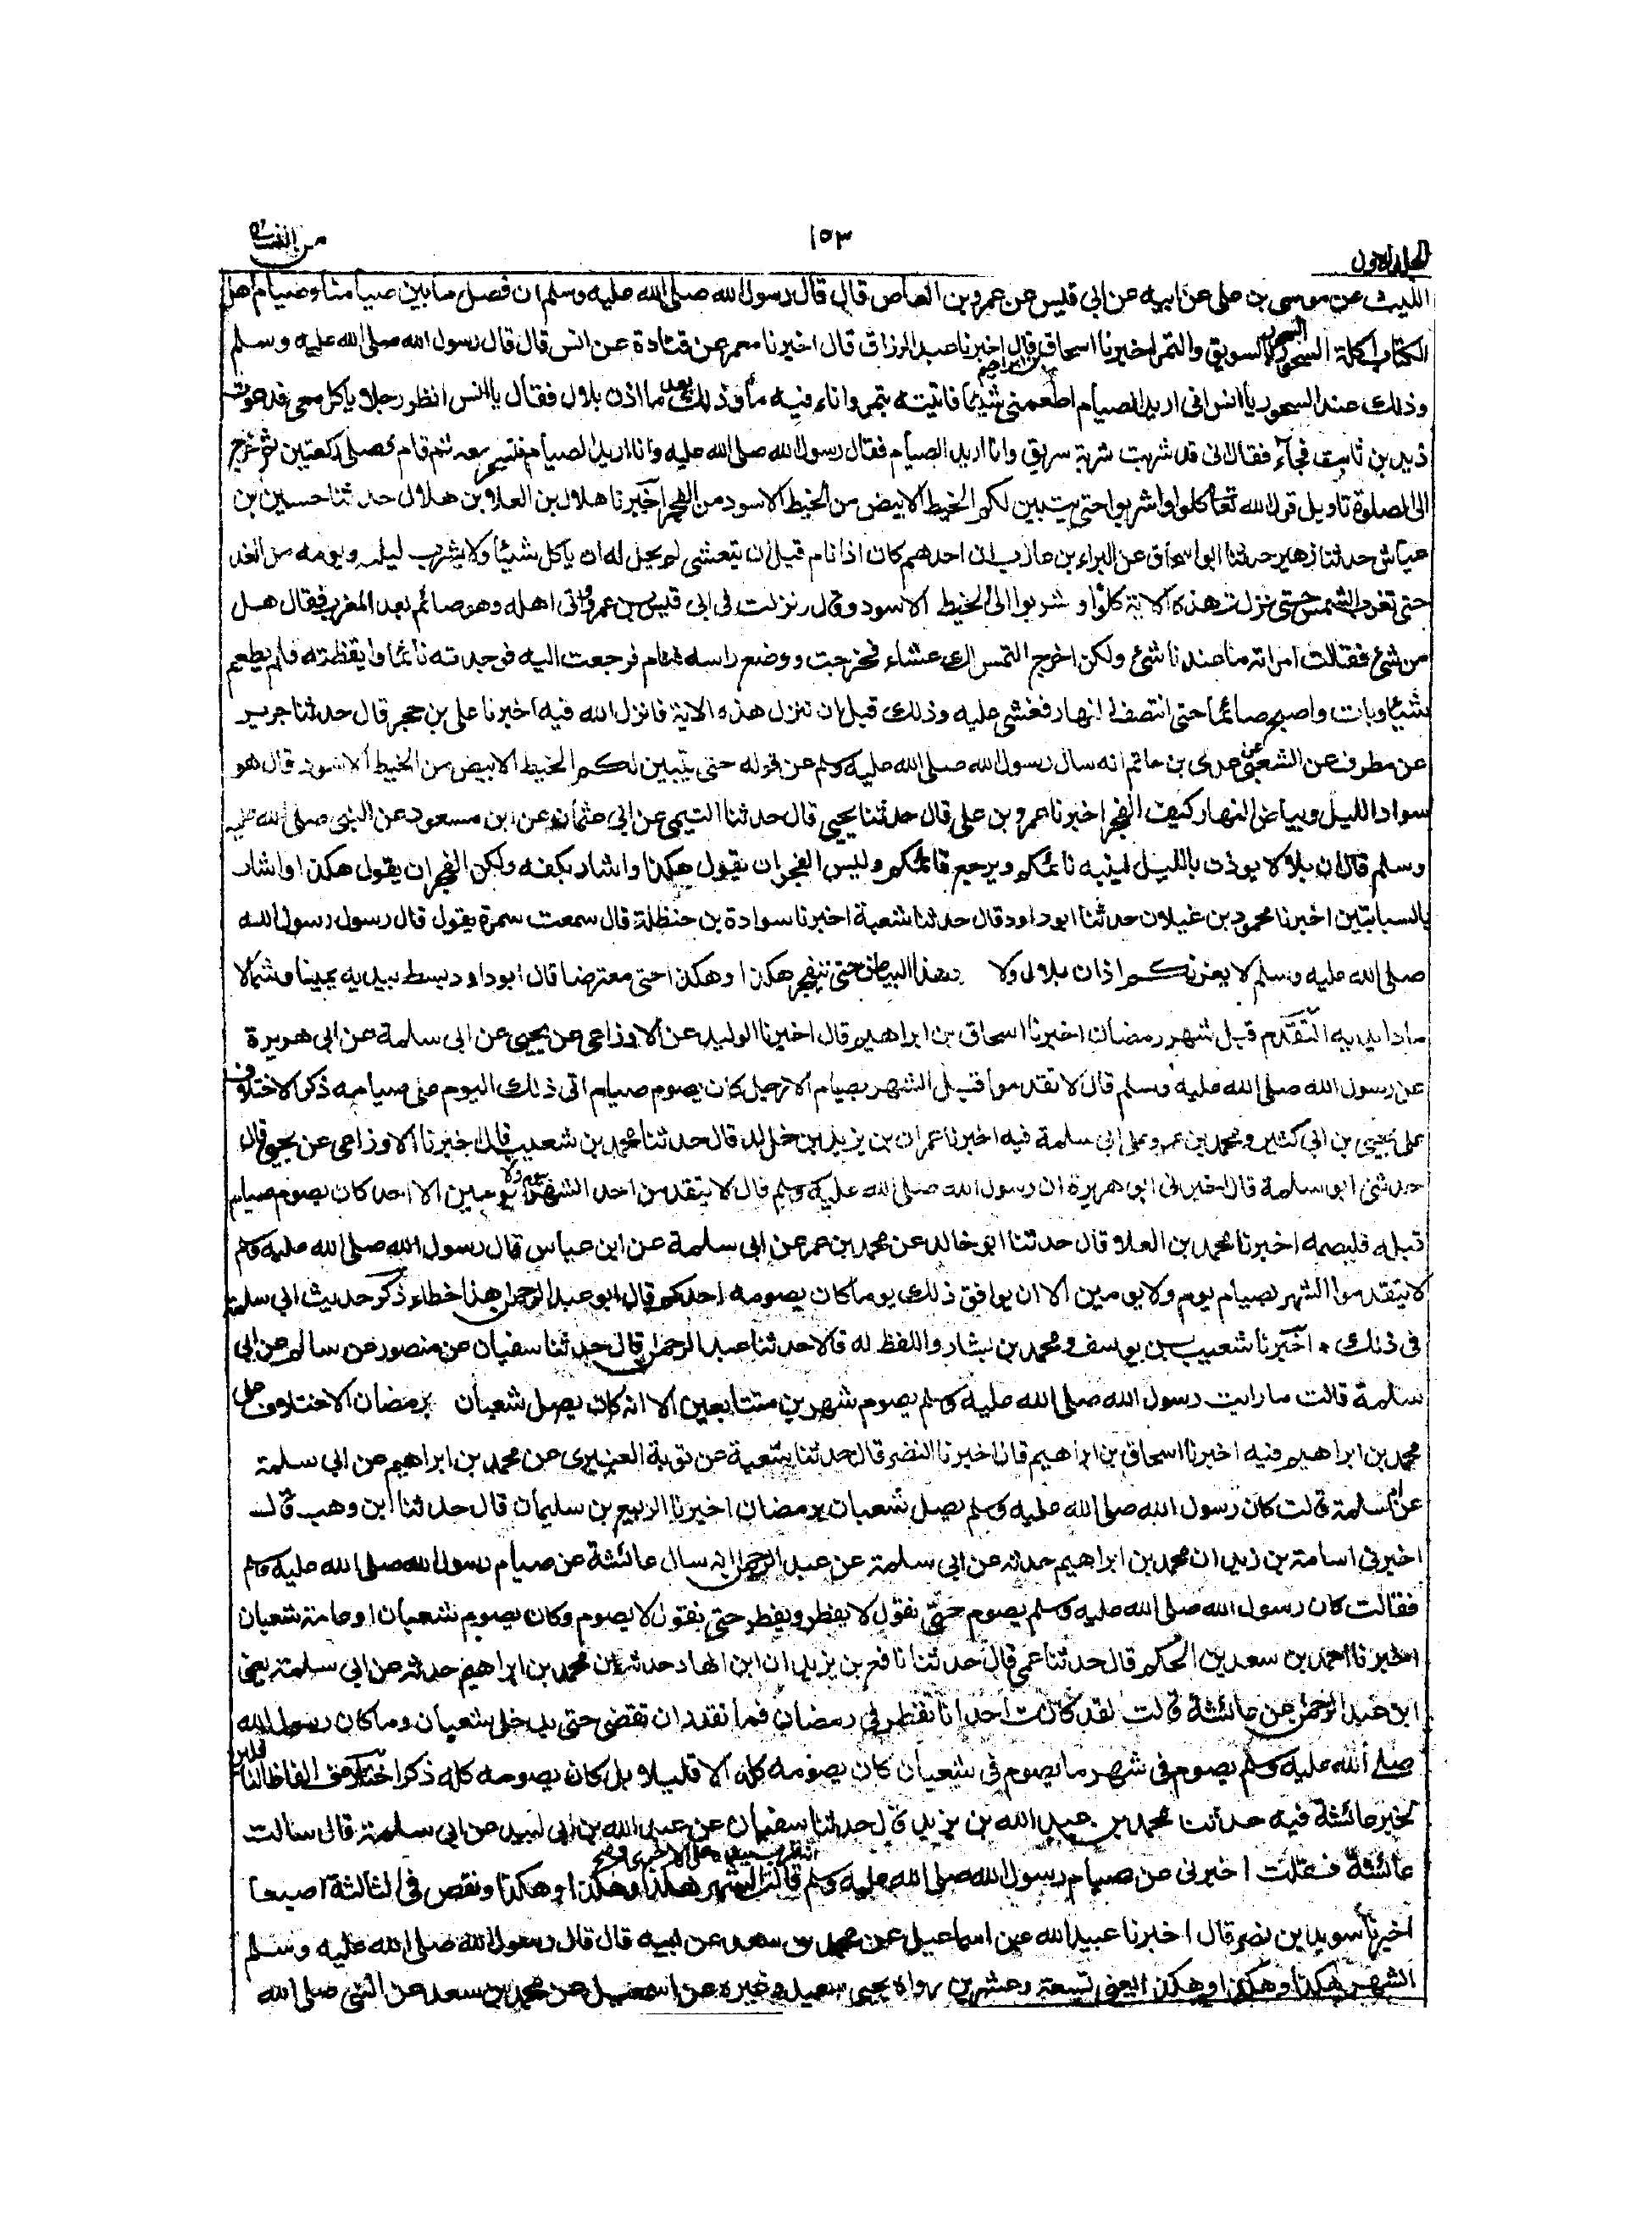 الجلد الاول
١٥٣
من النسائى
الليث عن موسى بن على عن ابيه عن ابى قيس عن عمرو بن العاص قال قال رسول الله صلى الله عليه وسلم ان فصل ما بين صيامنا وصيام اهل
الكتاب اكلة السحور السحور بالسويق والتمر اخبرنا اسحاق بن ابراهيم قال اخبرنا عبد الرزاق قال اخبرنا معمر عن قتادة عن انس قال قال رسول الله صلى الله عليه وسلم
وذلك عند السحور يا انس انى اريد الصيام اطعمنى شيئا فاتيته بتمر واناء فيه ماء وذلك بعد ما اذن بلال فقال يا انس انظر رجلا ياكل معى فدعوت
زيد بن ثابت فجاء فقال انى قد شربت شربة سويق وانا اريد الصيام فقال رسول الله صلى الله عليه وانا اريد الصيام فتسحر معه ثم قام فصلى ركعتين ثم خرج
الى الصلوة تاويل قول الله تعا كلوا واشربوا حتى يتبين لكم الخيط الابيض من الخيط الاسود من الفجر اخبرنا هلال بن العلاء بن هلال حدثنا حسين بن
عياش حدثنا زهير حدثنا ابو اسحاق عن البراء بن عازب ان احدهم كان اذا نام قبل ان يتعشى لم يحل له ان ياكل شيئا ولا يشرب ليله ويومه من الغد
حتى تغرب الشمس حتى نزلت هذه الاية كلوا و شربوا الى الخيط الاسود وقال نزلت فى ابى قيس بن عمرو اتى اهله وهو صائم بعد المغرب فقال هل
من شئ فقالت امراته ما عندنا شئ ولكن اخرج التمس لك عشاء فخرجت ووضع راسه فنام فرجعت اليه فوجدته نائما وايقظته فلم يطعم
شيئا وبات واصبح صائما حتى انتصف النهار فغشى عليه وذلك قبل ان تنزل هذه الاية فانزل الله فيه اخبرنا على بن حجر قال حدثنا جرير
عن مطرف عن الشعبى عن عدى بن حاتم انه سال رسول الله صلى الله عليه وسلم عن قوله حتى يتبين لكم الخيط الابيض من الخيط الاسود قال هو
سواد الليل وبياض النهار كيف الفجر اخبرنا عمرو بن على قال حدثنا يحيى قال حدثنا التيمى عن ابى عثمان عن ابن مسعود عن النبى صلى الله عليه
وسلم قال ان بلالا يوذن بالليل لينبه نائمكم ويرجع قائمكم وليس الفجر ان يقول هكذا واشار بكفه ولكن الفجر ان يقول هكذا واشار
بالسبابتين اخبرنا محمود بن غيلان حدثنا ابو داود قال حدثنا شعبة اخبرنا سوادة بن حنظلة قال سمعت سمرة يقول قال رسول رسول الله
صلى الله عليه وسلم لا يغرنكم اذان بلال ولا هذا البياض حتى ينفجر هكذا وهكذا حتى معترضا قال ابو داود بسط بيديه يمينا وشمالا
مادا يديه التقدم قبل شهر رمضان اخبرنا اسحاق بن ابراهيم قال اخبرنا الوليد عن الاوزاعى عن يحيى عن ابى سلمة عن ابى هريرة
عن رسول الله صلى الله عليه وسلم قال لا تقدموا قبل الشهر بصيام الا رجل كان يصوم صيام اتى ذلك اليوم على صيامه ذكر الاختلاف
على يحيى بن ابى كثير ومحمد بن عمرو على ابى سلمة فيه اخبرنا عمران بن يزيد بن خالد قال حدثنا محمد بن شعيب قال اخبرنا الاوزاعى عن يحيى قال
حدثنى ابو سلمة قال اخبرنى ابو هريرة ان رسول الله صلى الله عليه وسلم قال لا يتقدمن احد الشهر بيوم ولا يومين الا احد كان يصوم صيام
قبله فليصمه اخبرنا محمد بن العلاء قال حدثنا ابو خالد عن محمد بن عمر عن ابى سلمة عن ابن عباس قال رسول الله صلى الله عليه وسلم
لا يتقدموا الشهر بصيام يوم ولا يومين الا ان يوافق ذلك يوما كان يصومه احدكم قال ابو عبد الرحمن هذا خطاء ذكر حديث ابى سلمة
فى ذلك ٭ اخبرنا شعيب بن يوسف ومحمد بن بشار واللفظ له قالا حدثنا عبد الرحمن قال حدثنا سفيان عن منصور عن سالم عن ابى
سلمة قالت ما رايت رسول الله صلى الله عليه وسلم يصوم شهرين متتابعين الا انه كان يصل شعبان برمضان الاختلاف على
محمد بن ابراهيم فيه اخبرنا اسحاق بن ابراهيم قال اخبرنا النضر قال حدثنا شعبة عن توبة العنبرى عن محمد بن ابراهيم عن ابى سلمة
عن ام سلمة قالت كان رسول الله صلى الله عليه وسلم يصل شعبان برمضان اخبرنا الربيع بن سليمان قال حدثنا ابن وهب قال
اخبرنى اسامة بن زيد ان محمد بن ابراهيم حدثه عن ابى سلمة عن عبد الرحمن انه سال عائشة عن صيام رسول الله صلى الله عليه وسلم
فقالت كان رسول الله صلى الله عليه وسلم يصوم حتى نقول لا يفطر ويفطر حتى نقول لا يصوم وكان يصوم شعبان او عامة شعبان
اخبرنا احمد بن سعد بن الحكم قال حدثنا عمى قال حدثنا نافع بن يزيد ان ابن الهاد حدثه ان محمد بن ابراهيم حدثه عن ابى سلمة يعنى
ابن عبد الرحمن عن عائشة قالت لقد كانت احدانا تفطر فى رمضان فما نقدر ان تقضى حتى يدخل شعبان وما كان رسول الله
صلى الله عليه وسلم يصوم فى شهر ما يصوم فى شعبان كان يصومه كله الا قليلا بل كان يصومه كله ذكر اختلاف الفاظ الناقلين
لخبر عائشة فيه حدثنا محمد بن عبد الله بن يزيد قال حدثنا سفيان عن عبد الله بن ابى لبيد عن ابى سلمة قال سالت
عائشة فقلت اخبرنى عن صيام رسول الله صلى الله عليه وسلم قالت الشهر هكذا وهكذا وهكذا ونقص فى الثالثة اصبعا
اخبرنا سويد بن نصر قال اخبرنا عبد الله عن اسماعيل عن محمد بن سعد عن ابيه قال قال رسول الله صلى الله عليه وسلم
الشهر هكذا وهكذا وهكذا يعنى تسعة وعشرين رواه يحيى سعيد وغيره عن اسمعيل عن محمد بن سعد عن النبى صلى الله